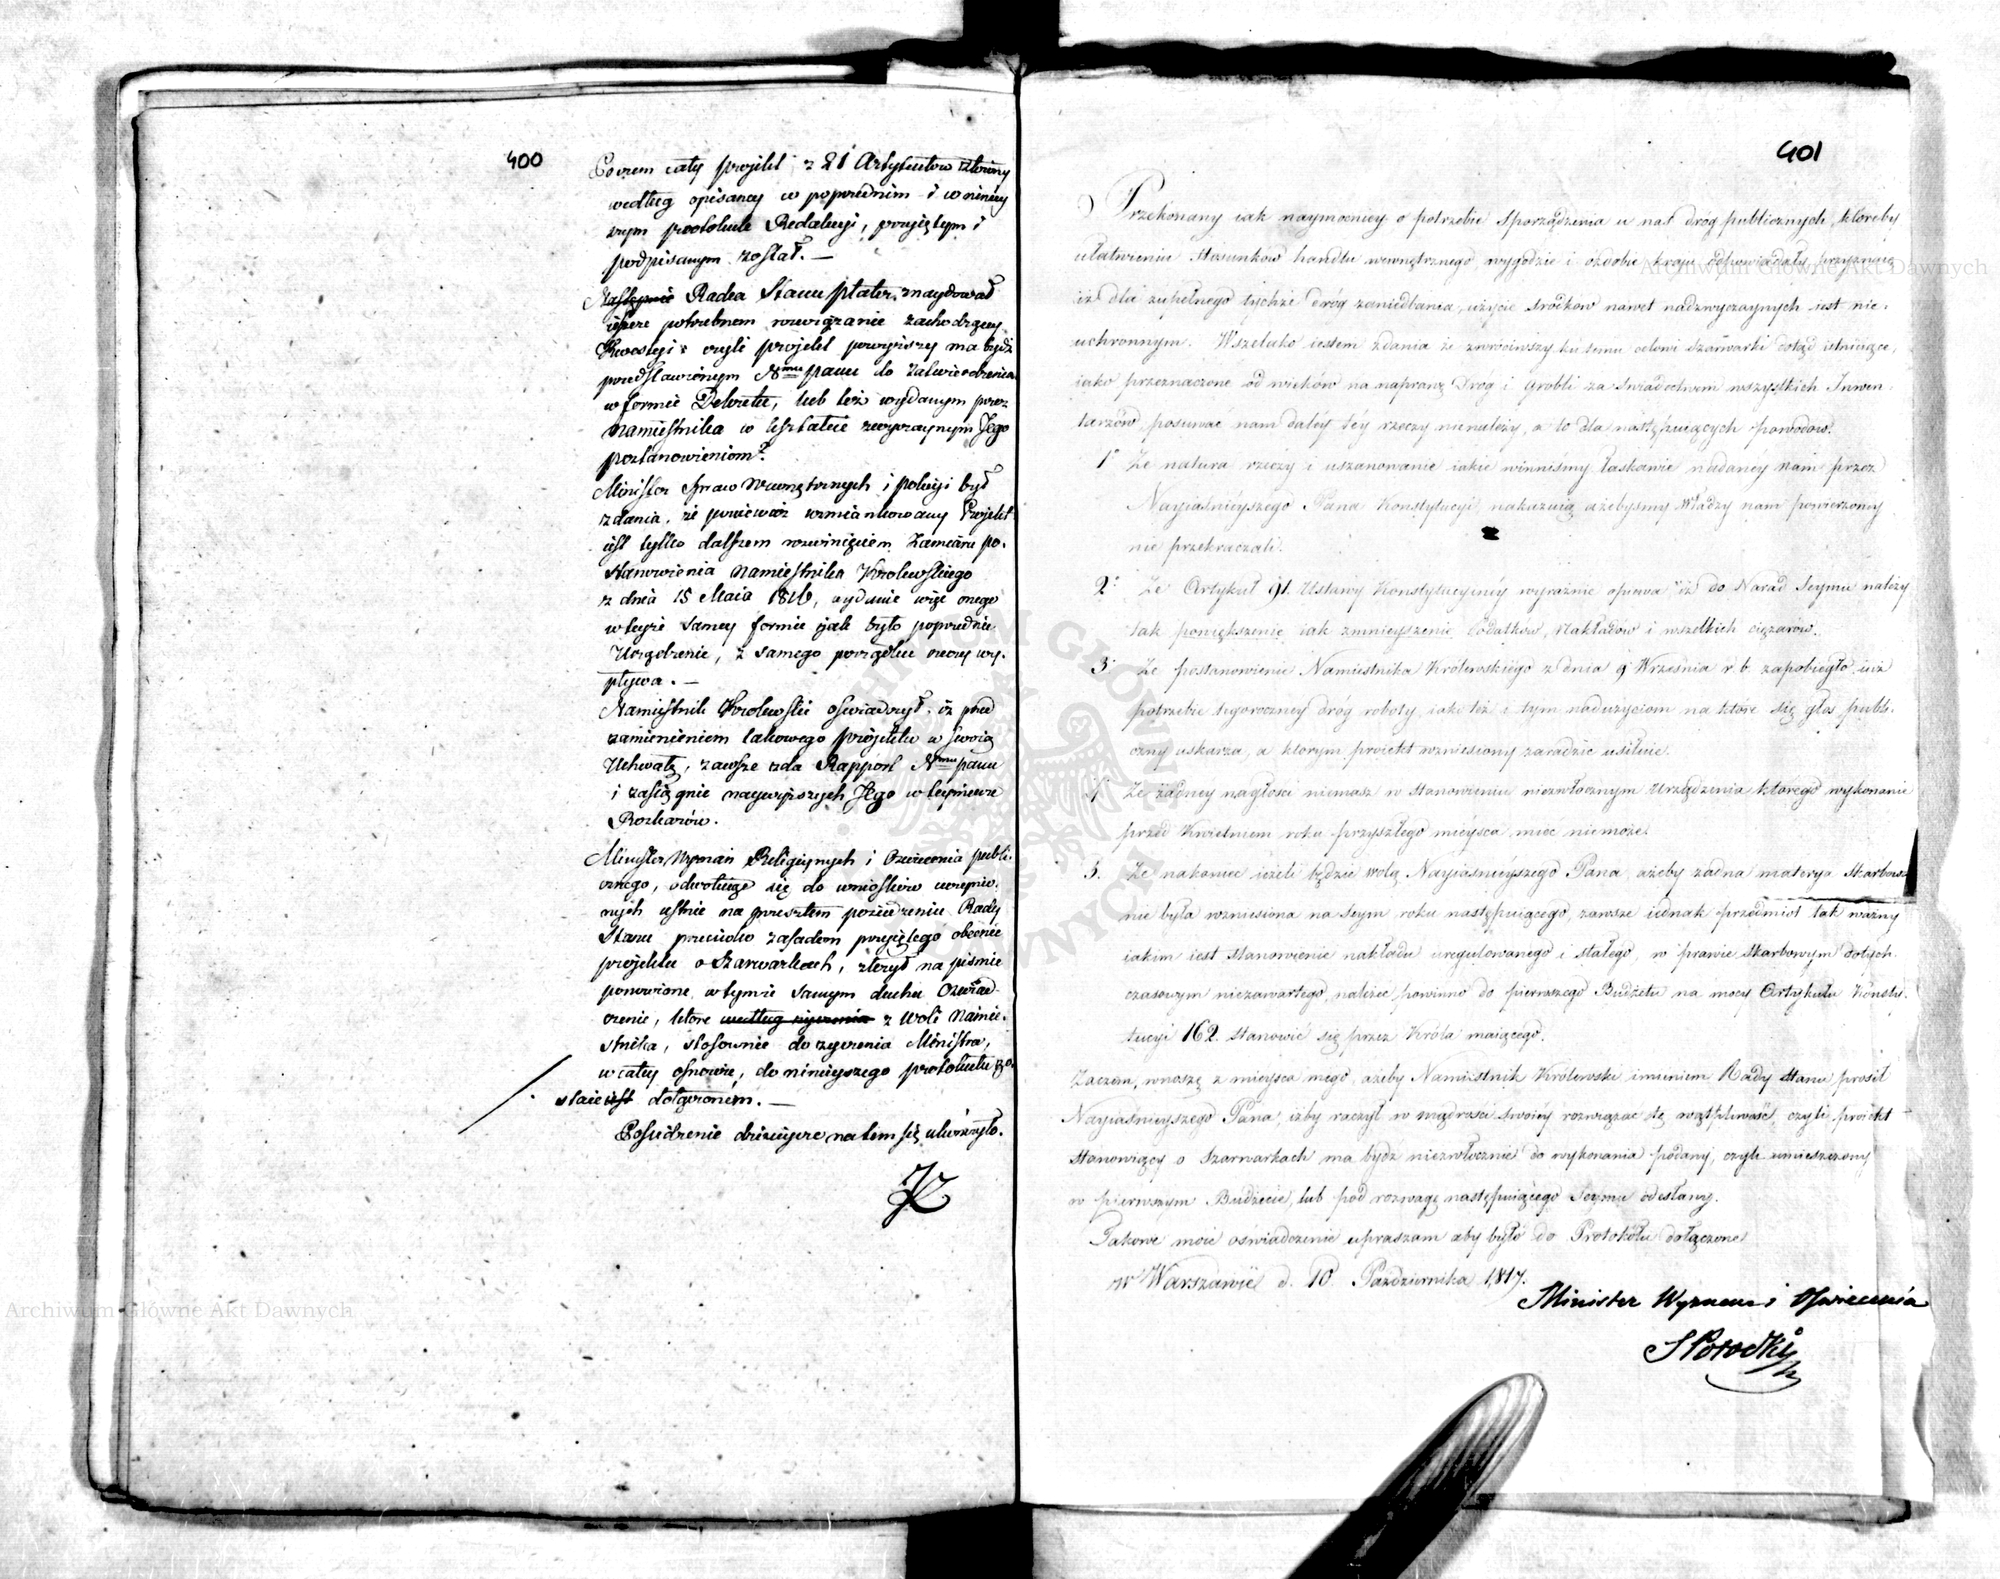 400
Poczem cały projekt z 21 Artykułów złożony
według opisaney w poprzednim i w niniey
szym protokule Redakcyi, przyiętym i
podpisanym został. —
Następnie Radca Stanu Plater, znaydował
ieszcze potrzebnem rozwiązanie zachodzącey
Kwestyi: czyli projekt powyższy ma bydź
przedstawionym Nmu Panu do Zatwierdzenia
w formie Dekretu, lub też wydanym przez
Namiestnika w kształcie zwyczaynym Jego
postanowieniom?
Minister Spraw Wewnętrznych i policyi był
zdania, że ponieważ wzmiankowany Projekt
iest tylko dalszem rozwinięciem Zamiaru po-
stanowienia Namiestnika Królewskiego
z dnia 15 Maia 1816, wydanie więc onego
w teyże samey formie jak było poprzednie
Urządzenie, z samego porządku rzeczy wy-
pływa. —
Namiestnik Królewski oświadczył, iż przed
zamienieniem takowego projektu w swoią
Uchwałę, zawsze zda Rapport Nmu Panu
i zasiągnie naywyższych Jego w tey mierze
Rozkazów.
Minister Wyznań Religiynych i Oświecenia publi-
cznego, odwołuiąc się do wniosków uczynio-
nych ustnie na przeszłem posiedzeniu Rady
Stanu przeciwko zasadom przyiętego obecnie
projektu o Szarwarkach, złożył na piśmie
ponowione w tymże samym duchu Oświad-
czenie, które według życzenia z woli Namie-
stnika, stosownie do życzenia Ministra,
w całey osnowie, do ninieyszego protokułu zo-
staie iest dołączonem. —
Posiedzenie dzisieysze na tem się ukończyło.
401
Przekonany iak naymocniey o potrzebie sporządzenia u nas dróg publicznych, któreby
ułatwieniu Stosunków handlu wewnętrznego, wygodzie i ozdobie kraiu odpowiadały, przyznaię
iż dla zupełnego tychże dróg zaniedbania, użycie srodków nawet nadzwyczaynych iest nie-
uchronnym. Wszelako iestem zdania że zwróciwszy ku temu celowi szarwarki dotąd istnieiące,
iako przeznaczone od wieków na naprawę Dróg i Grobli za świadectwem wszystkich Inwen-
tarzów, posuwać nam daléy téy rzeczy nienależy, a to dla następuiących powodów.
1° Że natura rzeczy i uszanowanie iakie winniśmy łaskawie nadanéy nam przez
Nayiaśnieyszego Pana Konstytucyi, nakazuią ażebyśmy Władzy nam powierzoney
nie przekraczali.
2° Że Artykuł 91. Ustawy Konstytucyinéy wyraźnie opiewa "iż do Narad Seymu należy
tak powiększenie iak zmnieyszenie Podatków, Nakładów i wszelkich ciężarów.
3° Że postanowienie Namiestnika Królewskiego z dnia 9 Września r. b. zapobiegło iuż
potrzebie tegoroczney dróg roboty, iako też i tym nadużyciom na które się głos publi-
czny uskarża, a którym proiekt wzniesiony zaradzić usiłuie.
4° Że żadney nagłości niemasz w stanowieniu niezwłocznym Urządzenia którego wykonanie
przed Kwietniem roku przyszłego miéysca mieć niemoże.
5. Że nakoniec ieżeli będzie wolą Nayiaśnieyszego Pana, ażeby żadna materya Skarbowa
nie była wzniesiona na Seym roku następuiącego, zawsze iednak przedmiot tak ważny
iakim iest stanowienie nakładu uregulowanego i stałego, w prawie Skarbowym dotych-
czasowym niezawartego, należeć powinno do pierwszego Budżetu na mocy Artykułu Konsty-
tucyi 162. stanowić się przez Króla maiącego.
Zaczem, wnoszę z mieysca mego, ażeby Namiestnik Królewski imieniem Rady Stanu prosił
Nayiaśnieyszego Pana, iżby raczył w mądrości swoiéy rozwiązać tę wątpliwość, czyli proiekt
stanowiący o Szarwarkach ma bydź niezwłocznie do wykonania podany, czyli umieszczony
w pierwszym Budżecie, lub pod rozwagę następuiącego Seymu odesłany.
Takowe moie oświadczenie upraszam aby było do Protokółu dołączone
w Warszawie d. 10 Października 1817.
Minister Wyznań i Oświecenia
S Potocki
Archiwum Główne Akt Dawnych
Archiwum Główne Akt Dawnych